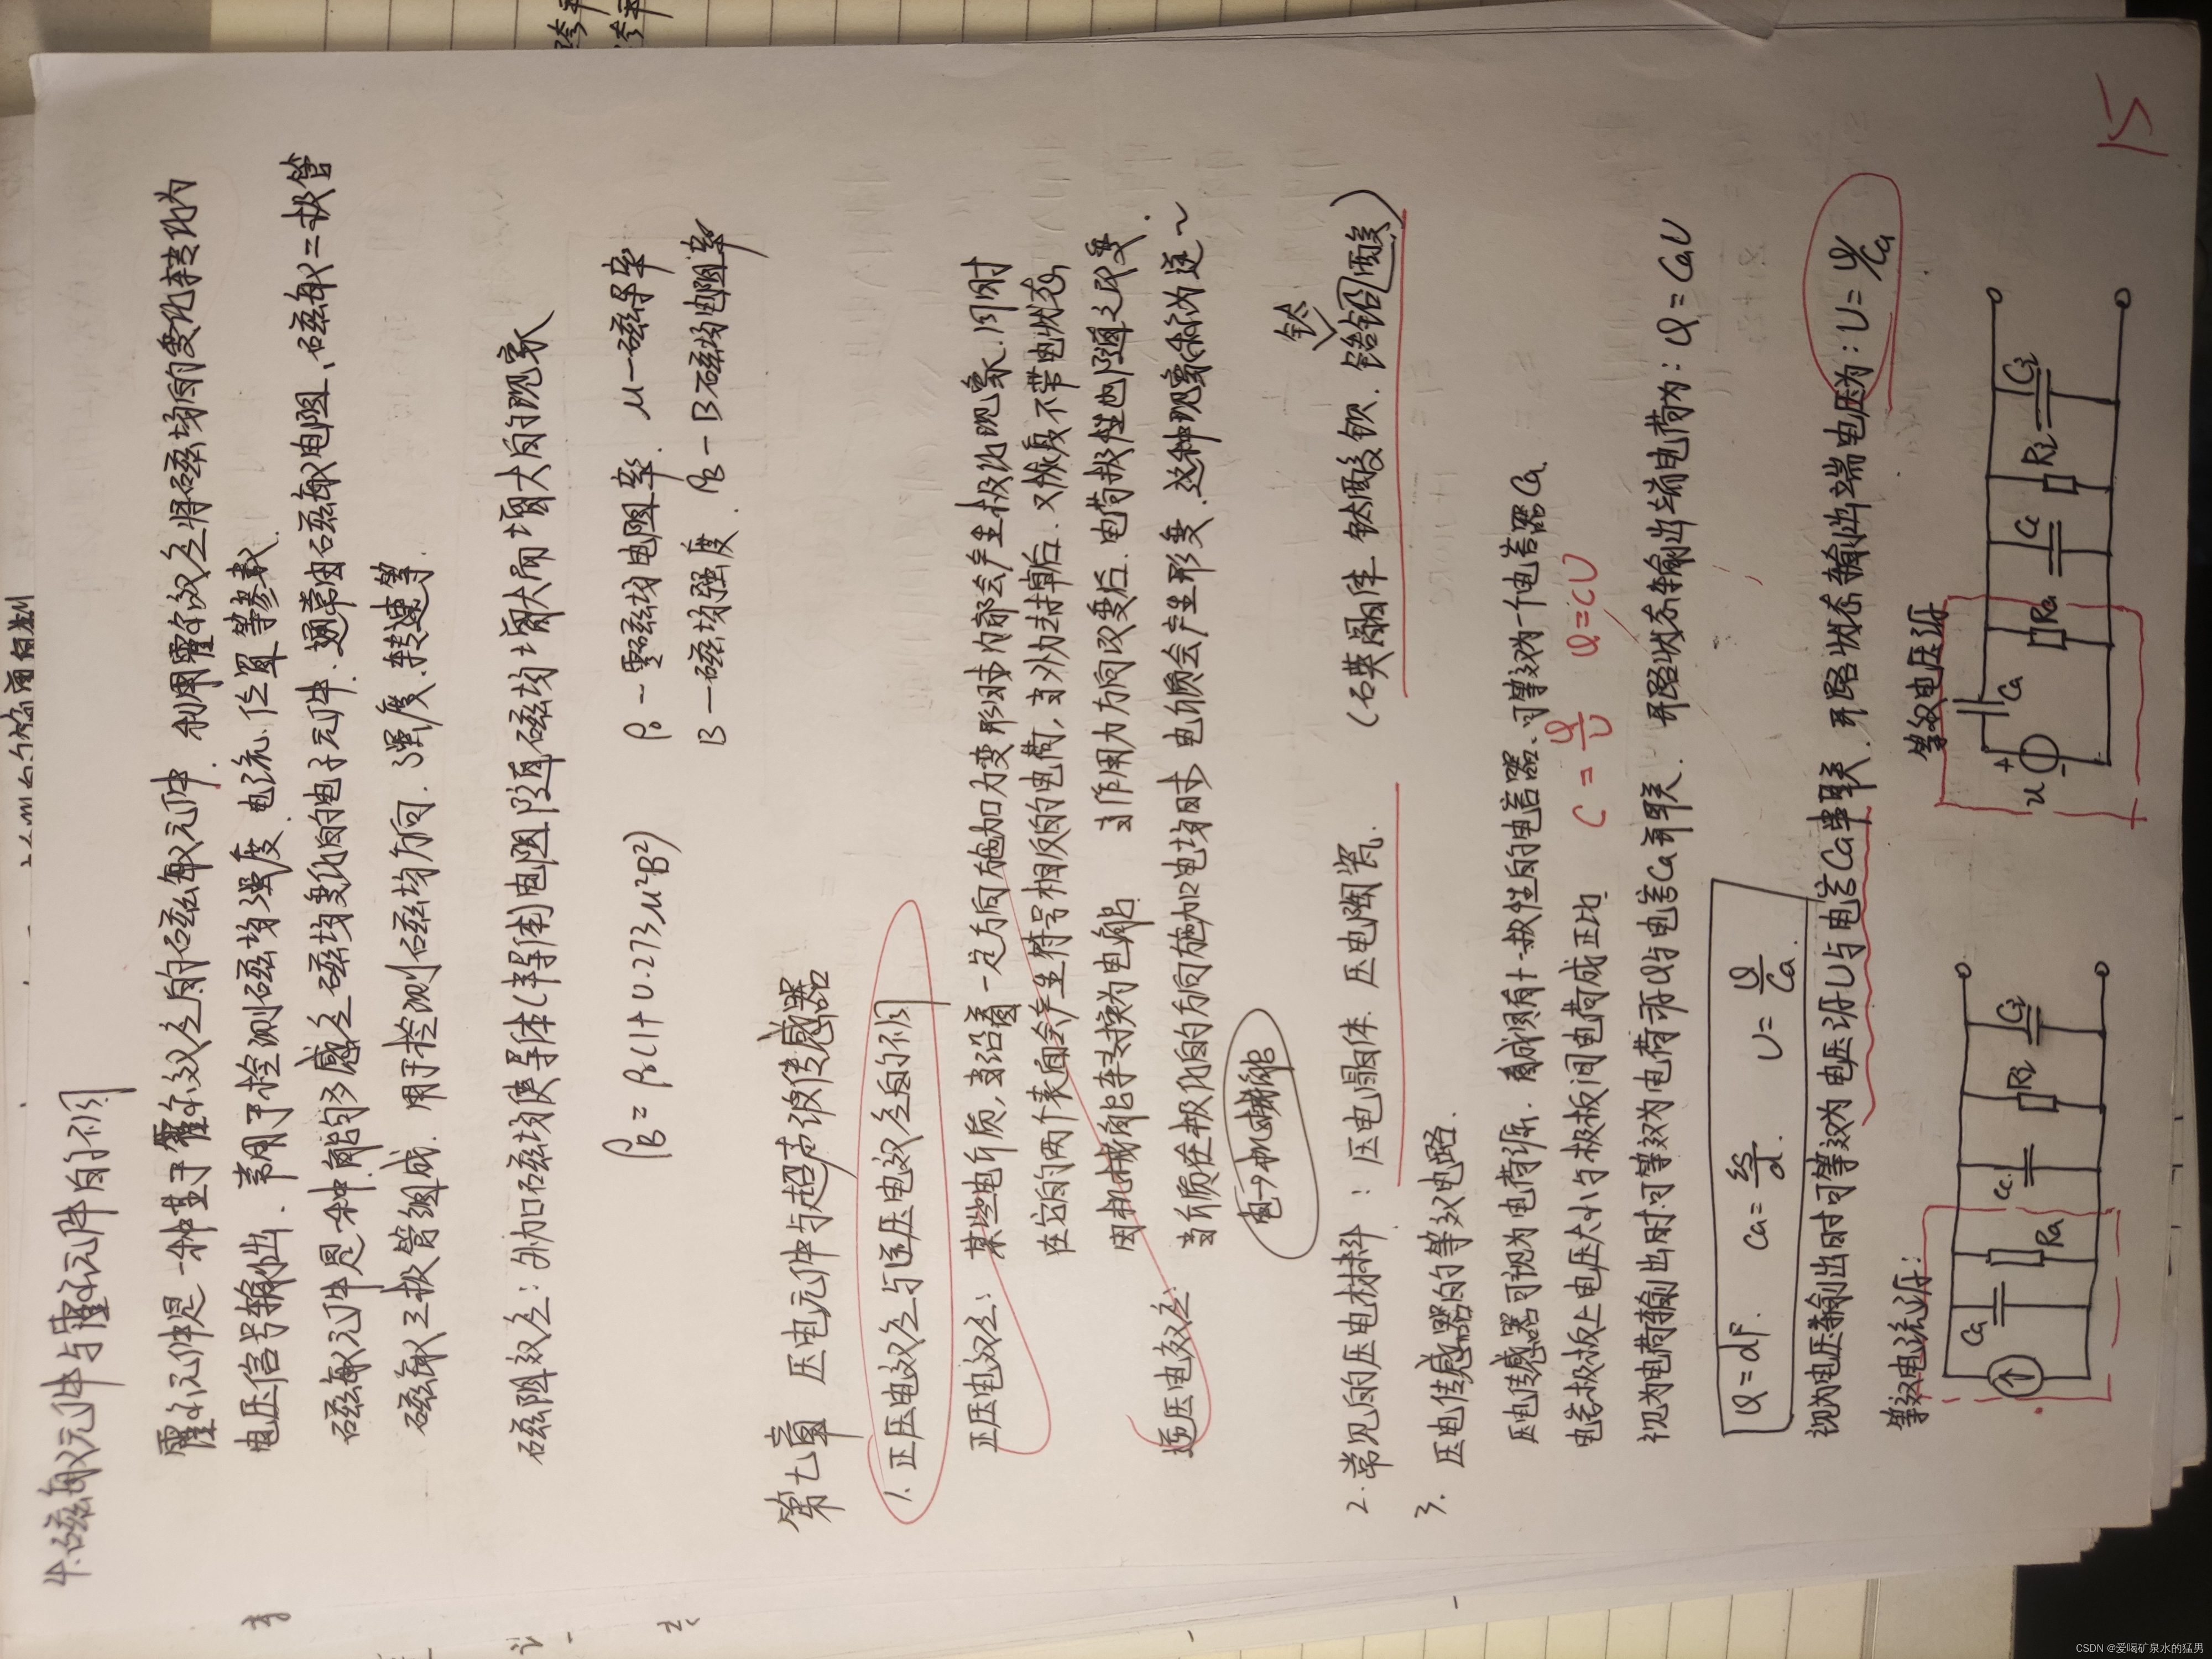 4.磁敏元件与霍尔元件的不同
霍尔元件是一种基于霍尔效应的磁敏元件.利用霍尔效应将磁场的变化转化为
电压信号输出.常用于检测磁场强度、电流、位置等参数.
磁敏元件是一种能够感应磁场变化的电子元件.通常由磁敏电阻、磁敏二极管
磁敏三极管组成.用于检测磁场方向.强度.转速等.
磁阻效应:外加磁场使导体(半导体)电阻随磁场增大而增大的现象
ρB = ρ0(1+0.273μ²B²) ρ0 — 零磁场电阻率. μ—磁导率
B — 磁场强度. ρB — B磁场电阻率
第七章 压电元件与超声波传感器
1.正压电效应与逆压电效应的不同
正压电效应:某些电介质,当沿着一定方向施加力变形时内部会产生极化现象.同时
在它的两个表面会产生符号相反的电荷,当外力去掉后.又恢复不带电状态
因机械能转换为电能 当作用力方向改变后.电荷极性也随之改变.
逆压电效应:当介质在极化的方向施加电场时 电介质会产生形变.这种现象称为逆~
电→机械能
2.常见的压电材料:压电晶体.压电陶瓷. (石英晶体.钛酸钡.锆钛铅酸)
3. 压电传感器的等效电路.
压电传感器可视为电荷源. 也可等效为一个电容器Ca
电容极板上电压大小与极板间电荷成正比 C=Q/U Q=CU
视为电荷输出时.可等效为电荷源Q与电容Ca并联. 开路状态输出端电荷为:Q=CaU
Q=dF. Ca=εs/d. U=Q/Ca.
视为电压输出时可等效为电压源U与电容Ca串联.开路状态输出端电压为:U=Q/Ca
等效电流源: 等效电压源
Ca Ra Cc Ri Ci
u + - Ca Ra Cc Ri Ci
15
CSDN @爱喝矿泉水的猛男